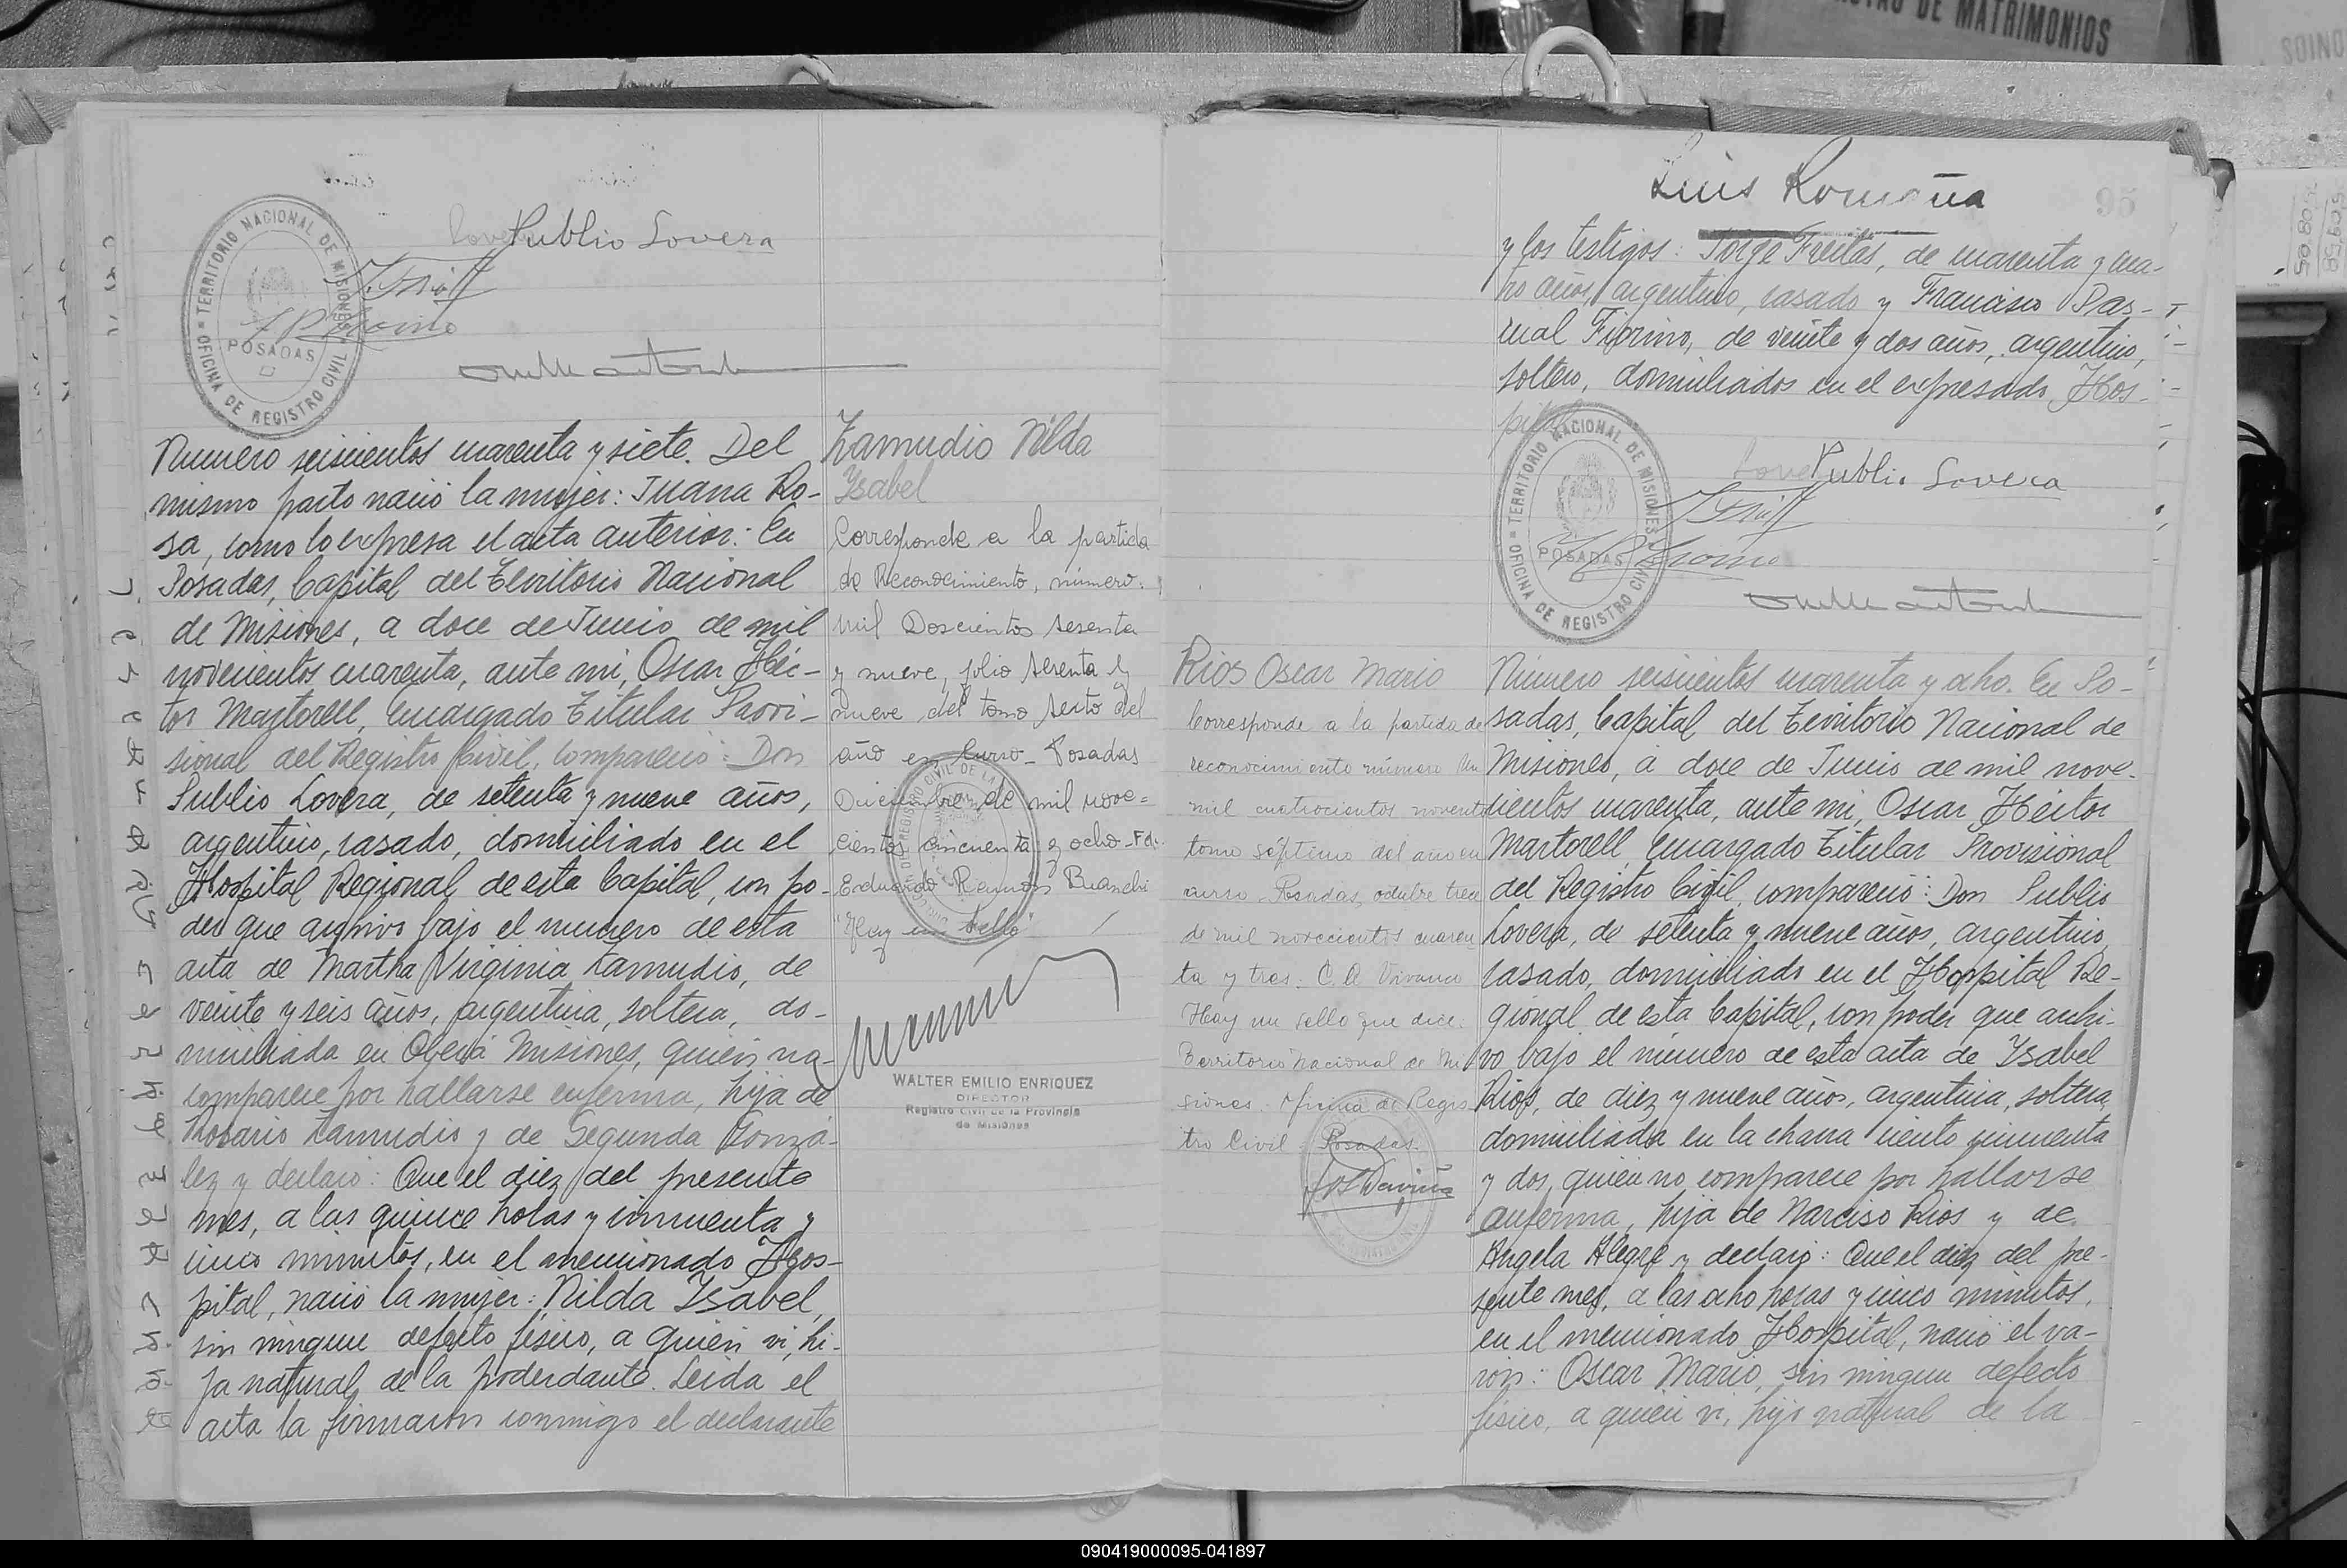 DE MATRIMONIOS
Publio Lovera
TERRITORIO NACIONAL DE MISIONES
POSADAS
OFICINA DE REGISTRO CIVIL
Numero seiscientos cuarenta y siete. Del
mismo parto nació la mujer: Juana Ro-
sa, como lo expresa el acta anterior. En
Posadas, Capital del Territorio Nacional
de Misiones, a doce de Junio de mil
novecientos cuarenta, ante mi, Oscar Héc-
tor Martorell, Encargado Titular Provi-
sional del Registro Civil, compareció: Don
Publio Lovera, de setenta y nueve años,
argentino, casado, domiciliado en el
Hospital Regional de esta Capital, con po-
der que archivo bajo el numero de esta
acta de Martha Virginia Zamudio, de
veinte y seis años, argentina, soltera, do-
miciliada en Oberá Misiones, quien no
comparece por hallarse enferma, hija de
Rosario Zamudio y de Segunda Gonzá-
lez y declaró: Que el diez del presente
mes, a las quince horas y cincuenta y
cinco minutos, en el mencionado Hos-
pital, nació la mujer: Nilda Ysabel,
sin ningun defecto físico, a quien vi, hi-
ja natural de la poderdante. Leida el
acta la firmaron conmigo el declarante
Zamudio Nilda
Ysabel
Corresponde a la partida
de Reconocimiento, número
mil Doscientos sesenta
y nueve, folio setenta y
nueve del tomo sexto del
año en curso - Posadas
Diciembre de mil nove=
cientos cincuenta y ocho - Fdo.
Eduardo Bianchi
"Hay un sello"
WALTER EMILIO ENRIQUEZ
DIRECTOR
Registro Civil de la Provincia
de Misiones
Luis Romaña
95
y los testigos: Jorge Freitas, de cuarenta y cua-
tro años, argentino, casado y Francisco Pas-
cual Fiorino, de veinte y dos años, argentino,
soltero, domiciliados en el expresado Hos-
pital
Publio Lovera
TERRITORIO NACIONAL DE MISIONES
POSADAS
OFICINA DE REGISTRO CIVIL
Rios Oscar Mario
Corresponde a la partida de
reconocimiento número Un
mil cuatrocientos noventa
tomo séptimo del año en
curso - Posadas, octubre trece
de mil novecientos cuaren
ta y tres. C. A. Vivanco
Hay un sello que dice:
Territorio Nacional de Mi
siones. Oficina de Regis
tro Civil - Posadas.
Número seiscientos cuarenta y ocho. En Po-
sadas, Capital del Territorio Nacional de
Misiones, a doce de Junio de mil nove-
cientos cuarenta, ante mi, Oscar Héctor
Martorell, Encargado Titular Provisional
del Registro Civil, compareció: Don Publio
Lovera, de setenta y nueve años, argentino,
casado, domiciliado en el Hospital Re-
gional de esta Capital, con poder que archi-
vo bajo el número de esta acta de Ysabel
Rios, de diez y nueve años, argentina, soltera,
domiciliada en la chacra ciento cincuenta
y dos, quien no comparece por hallarse
enferma, hija de Narciso Rios y de
Angela Alegre y declaró: Que el diez del pre-
sente mes, a las ocho horas y cinco minutos,
en el mencionado Hospital, nació el va-
rón: Oscar Mario, sin ningun defecto
físico, a quien vi, hijo natural de la
090419000095-041897